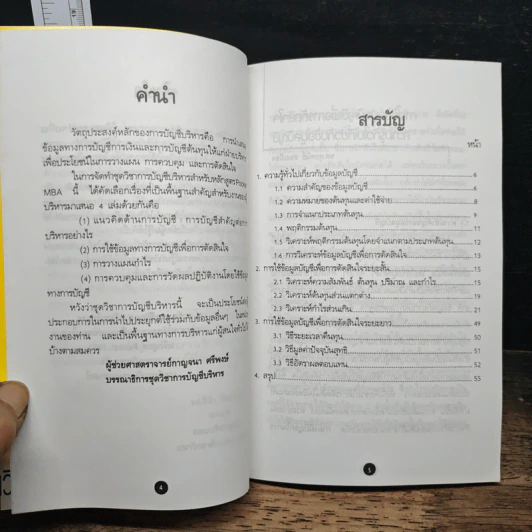 คำนำ
วัตถุประสงค์หลักของการบัญชีบริหารคือ การนำเสนอ
ข้อมูลทางการบัญชีการเงินและการบัญชีต้นทุนให้แก่ฝ่ายบริหาร
เพื่อประโยชน์ในการวางแผน การควบคุม และการตัดสินใจ
ในการจัดทำชุดวิชาการบัญชีบริหารสำหรับหลักสูตร
MBA นี้ ได้คัดเลือกเรื่องที่เป็นพื้นฐานสำคัญสำหรับงาน
บริหารมาเสนอ 4 เล่มด้วยกันคือ
(1) แนวคิดด้านการบัญชี : การบัญชีสำคัญต่อการ
บริหารอย่างไร
(2) การใช้ข้อมูลทางการบัญชีเพื่อการตัดสินใจ
(3) การวางแผนกำไร
(4) การควบคุมและการวัดผลปฏิบัติงานโดยใช้ข้อมูล
ทางการบัญชี
หวังว่าชุดวิชาการบัญชีบริหารนี้ จะเป็นประโยชน์ต่อ
ประกอบการในการนำไปประยุกต์ใช้ร่วมกับข้อมูลอื่นๆ ใน
งานของท่าน และเป็นพื้นฐานทางการบริหารแก่ผู้สนใจทั่วไป
บ้างตามสมควร
ผู้ช่วยศาสตราจารย์กาญจนา ศรีพงษ์
บรรณาธิการชุดวิชาการบัญชีบริหาร
4
สารบัญ
หน้า
1. ความรู้ทั่วไปเกี่ยวกับข้อมูลบัญชี 6
1.1 ความสำคัญของข้อมูลบัญชี 6
1.2 ความหมายของต้นทุนและค่าใช้จ่าย 8
1.3 การจำแนกประเภทต้นทุน 9
1.4 พฤติกรรมต้นทุน 11
1.5 วิเคราะห์พฤติกรรมต้นทุนโดยจำแนกตามประเภทต้นทุน 12
1.6 การวิเคราะห์ข้อมูลบัญชีเพื่อการตัดสินใจ 13
2. การใช้ข้อมูลบัญชีเพื่อการตัดสินใจระยะสั้น
2.1 วิเคราะห์ความสัมพันธ์ ต้นทุน ปริมาณ และกำไร
2.2 วิเคราะห์ต้นทุนส่วนแตกต่าง
2.3 วิเคราะห์กำไรส่วนเกิน
3. การใช้ข้อมูลบัญชีเพื่อการตัดสินใจระยะยาว 49
3.1 วิธีระยะเวลาคืนทุน 50
3.2 วิธีมูลค่าปัจจุบันสุทธิ 51
3.3 วิธีอัตราผลตอบแทน 52
4. สรุป 53
5